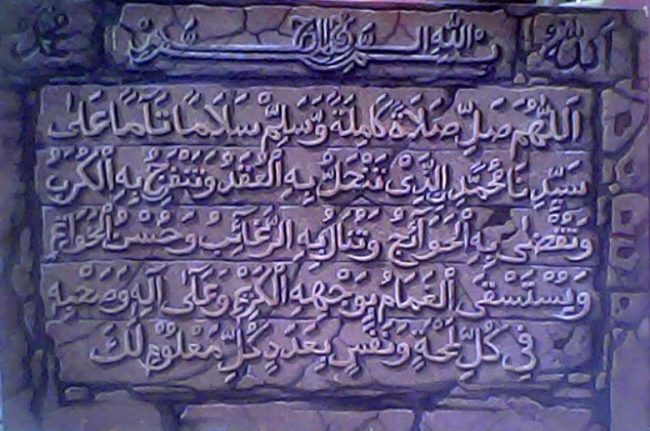 الله بسم الله الرحمن الرحيم محمد
اَللّٰهُمَّ صَلِّ صَلَاةً كَامِلَةً وَّسَلِّمْ سَلَامًا تَآمًّا عَلٰى
سَيِّدِنَا مُحَمَّدِ الَّذِىْ تَنْحَلُّ بِهِ الْعُقَدُ وَتَنْفَرِجُ بِهِ الْكُرَبُ
وَتُقْضٰى بِهِ الْحَوَآئِجُ وَتُنَالُ بِهِ الرَّغَآئِبُ وَحُسْنُ الْخَوَاتِمِ
وَيُسْتَسْقَى الْغَمَامُ بِوَجْهِهِ الْكَرِيْمِ وَعَلٰى آلِهِ وَصَحْبِهِ
فِيْ كُلِّ لَمْحَةٍ وَنَفَسٍ بِعَدَدِ كُلِّ مَعْلُوْمٍ لَكَ